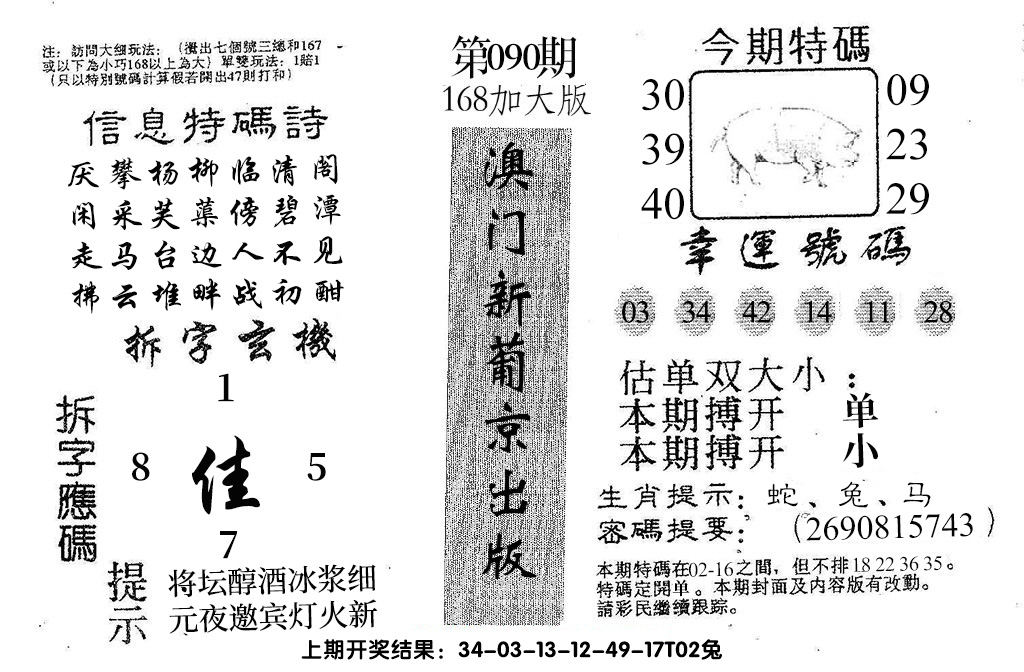 注：訪問大细玩法：（攪出七個號三總和167
或以下為小巧168以上為大）單雙玩法：1賠1
（只以特別號碼計算假若開出47則打和）
信息特碼詩
厌攀杨柳临清阁
闲采芙蕖傍碧潭
走马台边人不见
拂云堆畔战初酣
拆字玄機
拆字應碼
1
8 佳 5
7
提示
将坛醇酒冰浆细
元夜邀宾灯火新
第090期
168加大版
澳门新葡京出版
今期特碼
30 09
39 23
40 29
幸運號碼
03 34 42 14 11 28
估单双大小：
本期搏开 单
本期搏开 小
生肖提示：蛇、兔、马
密碼提要：（2690815743）
本期特碼在02-16之間，但不排18 22 36 35。
特碼定開单。本期封面及内容版有改動。
請彩民繼續跟踪。
上期开奖结果：34-03-13-12-49-17T02兔